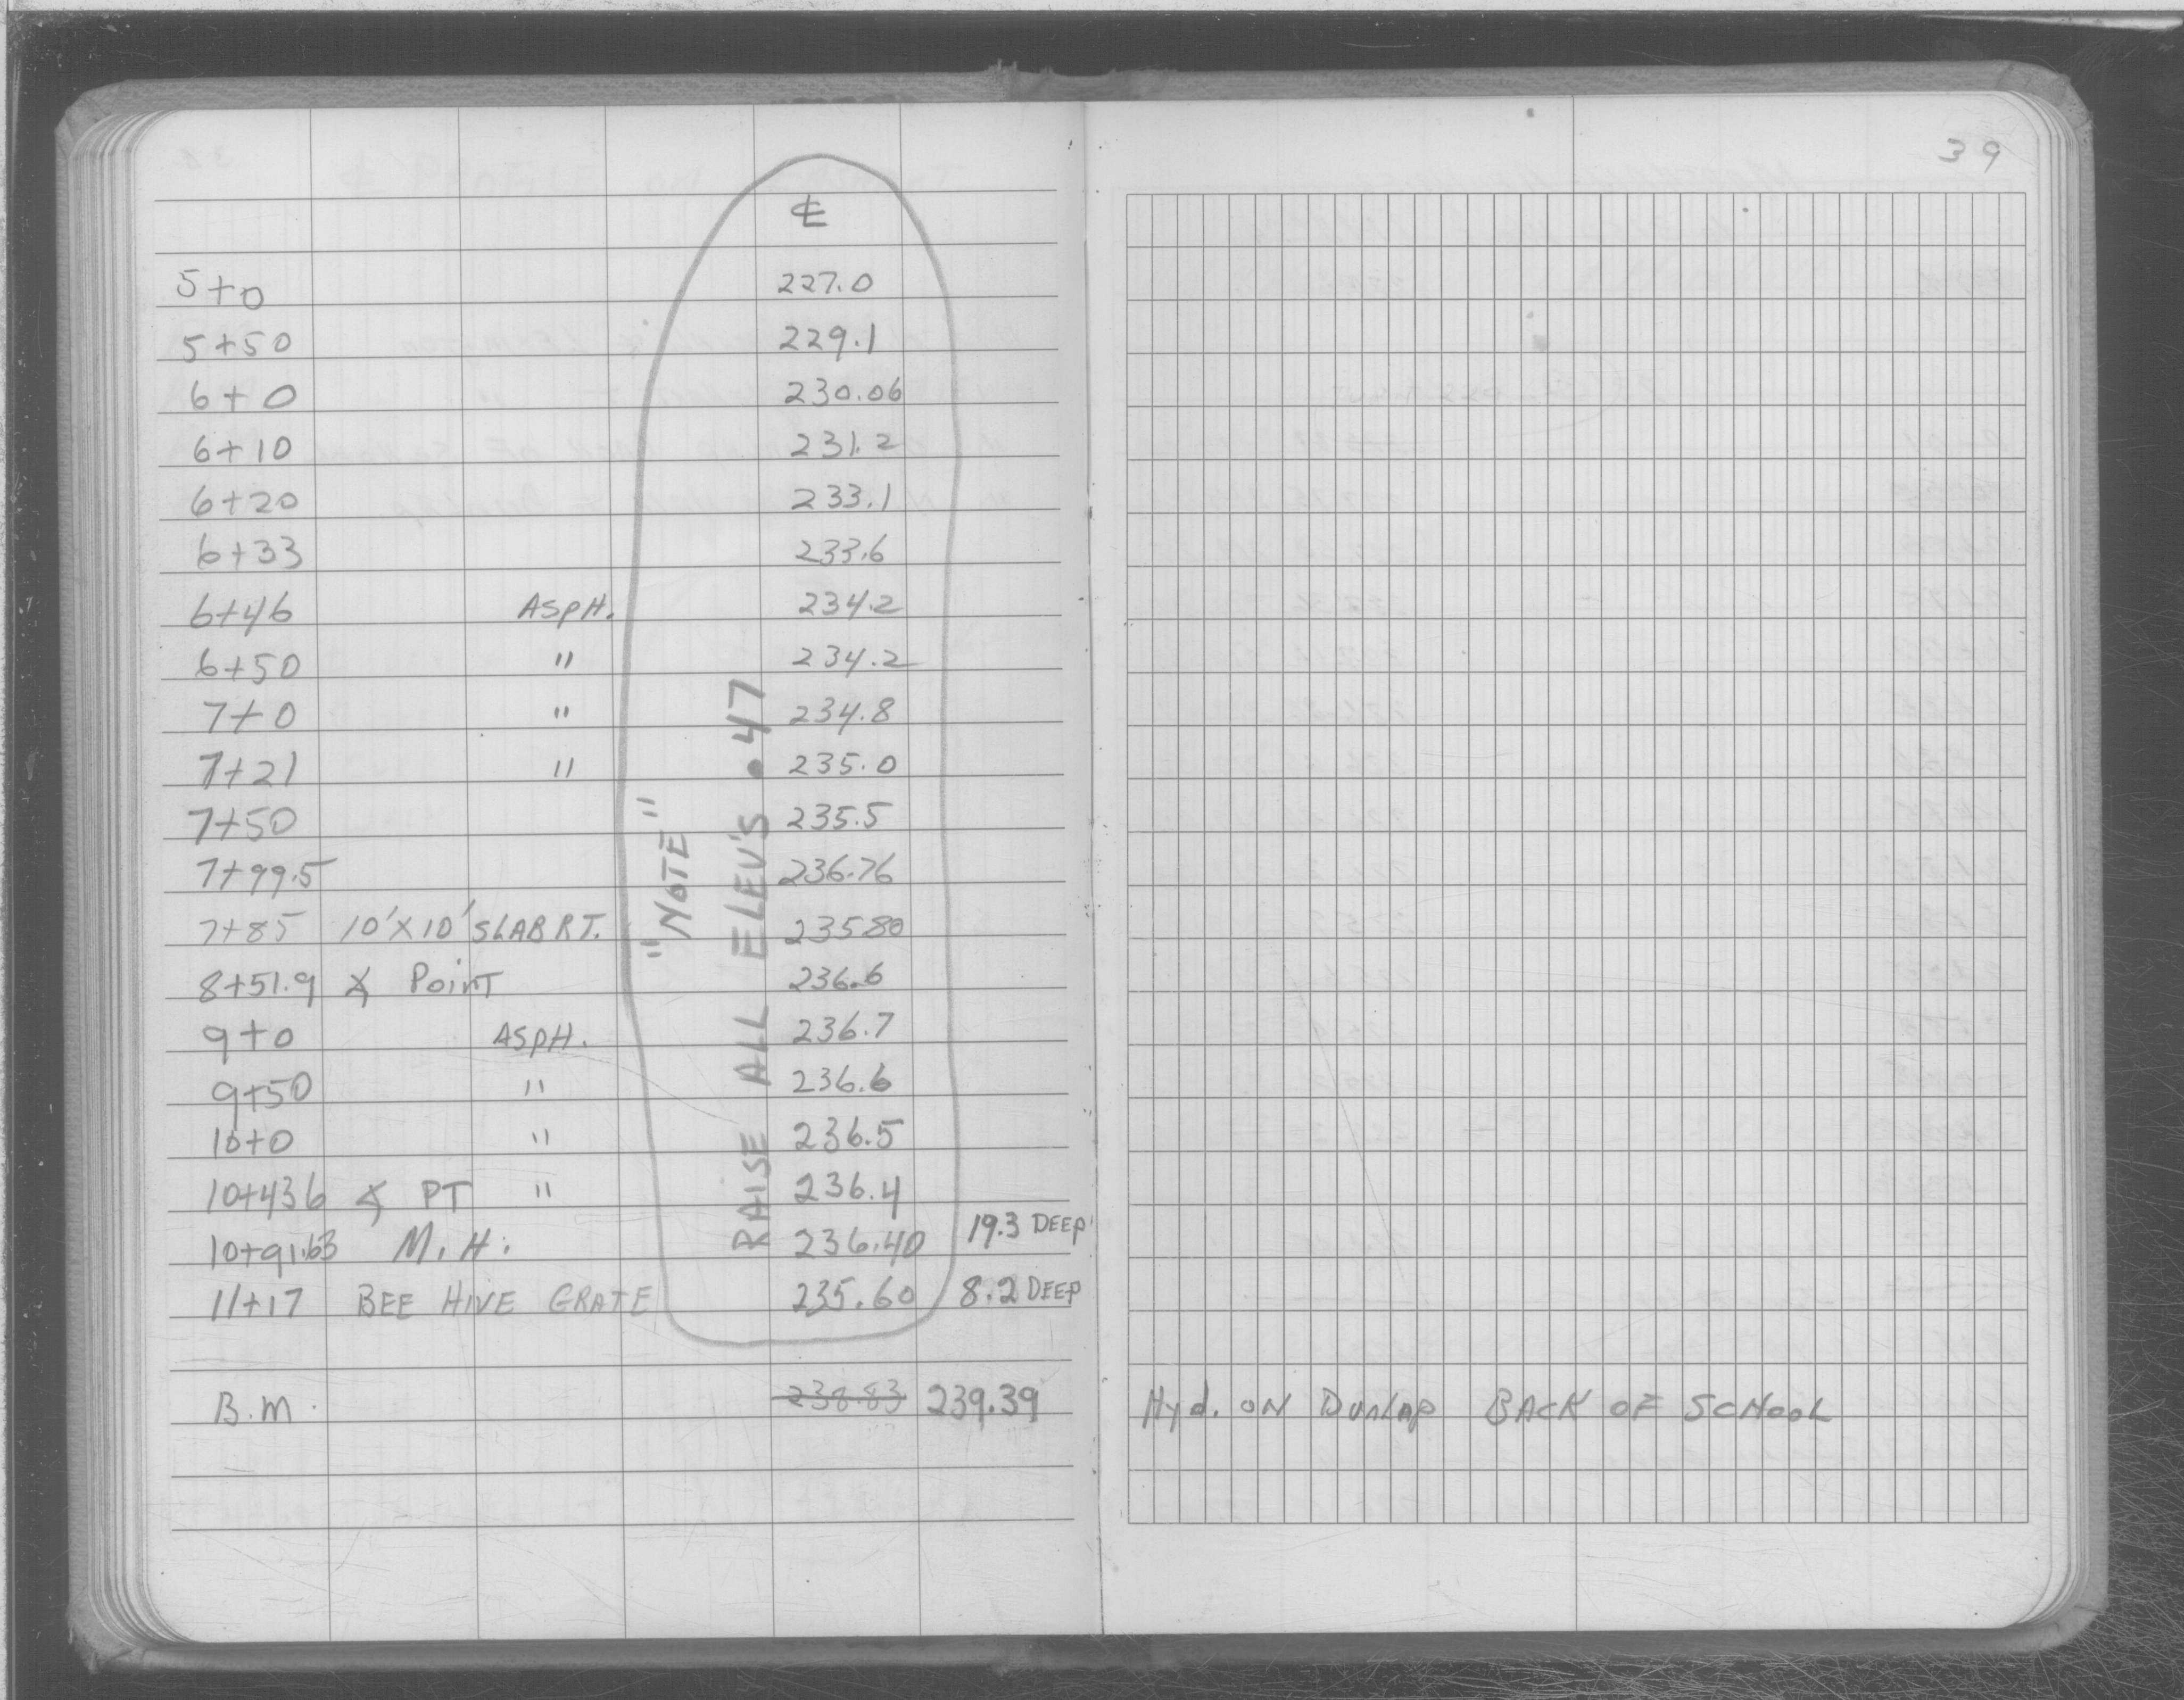 39
℄
5+0 227.0
5+50 229.1
6+0 230.06
6+10 231.2
6+20 233.1
6+33 233.6
6+46 ASPH. 234.2
6+50 " 234.2
7+0 " 234.8
7+21 " 235.0
7+50 235.5
7+99.5 236.76
7+85 10'X10' SLAB RT. 235.80
8+51.9 ∡ Point 236.6
9+0 ASPH. 236.7
9+50 " 236.6
10+0 " 236.5
10+43.6 ∡ PT " 236.4
10+91.63 M.H. 236.40 19.3 DEEP
11+17 BEE HIVE GRATE 235.60 8.2 DEEP
"NOTE"
RAISE ALL ELEV'S .47
B.M. 238.83 239.39 Hyd. ON Dunlap BACK OF SCHOOL